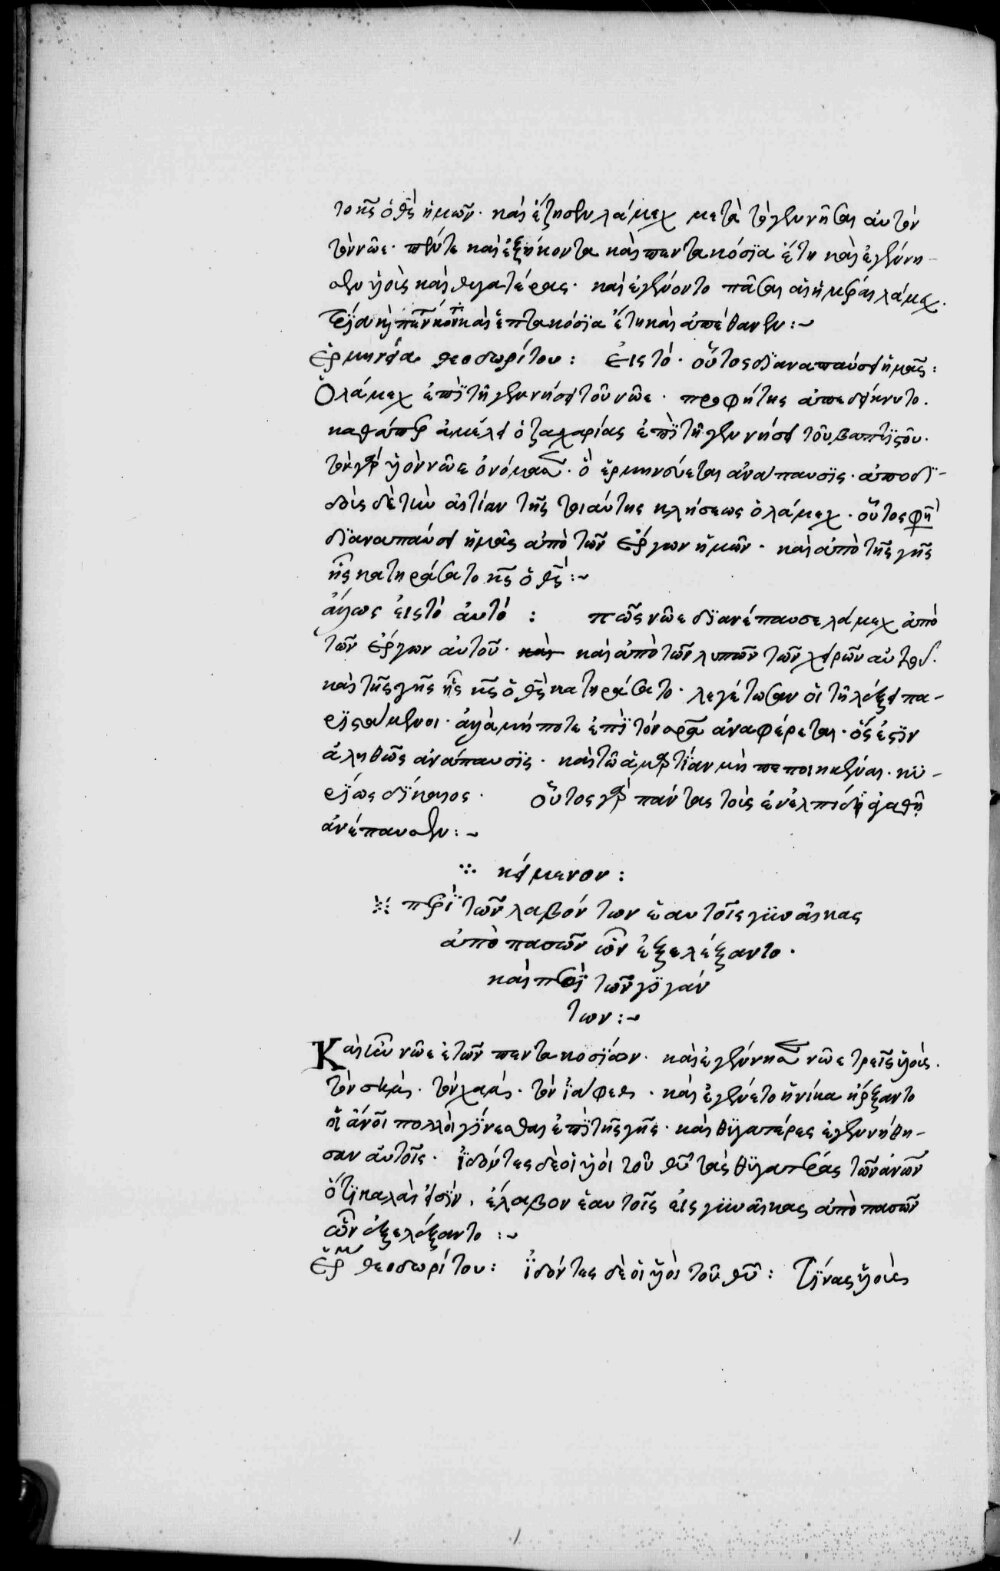 το κ̅ς ὁ θ̅ς ἡμῶν· καὶ ἔζησεν λάμεχ μετὰ τὸ γεννῆσαι αὐτὸν
τὸν νῶε· πέντε καὶ ἑξήκοντα καὶ πεντακόσϊα ἔτη καὶ ἐγέννη-
σεν υἱοὺς καὶ θυγατέρας· καὶ ἐγένοντο πᾶσαι αἱ ἡμέραι λάμεχ·
τρία καὶ πεντήκοντα καὶ ἑπτακόσϊα ἔτη καὶ ἀπέθανεν:~
Ἑρμηνεία θεοδωρίτου: εἰς τό· οὗτος διαναπαύσει ἡμᾶς:
Ὁ λάμεχ ἐπὶ τῇ γεννήσει τοῦ νῶε· προφήτης ἀπεδείκνυτο·
καθάπερ ἀμέλει ὁ ζαχαρίας ἐπὶ τῇ γεννήσει τοῦ βαπτιστοῦ·
τὸν γὰρ υἱὸν νῶε ὀνόμασε· ὃ ἑρμηνεύεται ἀνάπαυσις· ἀποδι-
δοὺς δὲ τὴν αἰτίαν τῆς τοιαύτης κλήσεως ὁ λάμεχ· οὗτος φησὶ
διαναπαύσει ἡμᾶς ἀπὸ τῶν ἔργων ἡμῶν· καὶ ἀπὸ τῆς γῆς
ἧς κατηράσατο κ̅ς ὁ θ̅ς:~
ἄλλως εἰς τὸ αὐτό: πῶς νῶε διανέπαυσε λάμεχ ἀπὸ
τῶν ἔργων αὐτοῦ· καὶ ἀπὸ τῶν λυπῶν τῶν χειρῶν αὐτοῦ·
καὶ τῆς γῆς ἧς κ̅ς ὁ θ̅ς κατηράσατο· λεγέτωσαν οἱ τῇ λέξει πα-
ριστάμενοι· ἀλλὰ μήποτε ἐπὶ τὸν σρ̅α ἀναφέρεται· ὅς ἐστιν
ἀληθῶς ἀνάπαυσις· καὶ τῶ ἁμαρτίαν μὴ πεποιηκέναι· κυ-
ρίως δίκαιος· οὗτος γὰρ πάντας τοὺς ἐν ἐλπίδι ἀγαθῇ
ἀνέπαυσεν:~
κείμενον:
περὶ τῶν λαβόντων ἑαυτοῖς γυναῖκας
ἀπὸ πασῶν ὧν ἐξελέξαντο·
καὶ περὶ τῶν γιγάν
των:~
Καὶ ἦν νῶε ἐτῶν πεντακοσίων· καὶ ἐγέννησε νῶε τρεῖς υἱούς·
τὸν σημ· τὸν χαμ· τὸν ἰάφεθ· καὶ ἐγένετο ἡνίκα ἤρξαντο
οἱ ἄν̅οι πολλοὶ γίνεσθαι ἐπὶ τῆς γῆς· καὶ θυγατέρες ἐγεννήθη-
σαν αὐτοῖς· ἰδόντες δὲ οἱ υἱοὶ τοῦ θ̅υ τὰς θυγατέρας τῶν ἀν̅ων
ὅτι καλαὶ εἰσίν· ἔλαβον ἑαυτοῖς εἰς γυναῖκας ἀπὸ πασῶν
ὧν ἐξελέξαντο:~
Ἑρμ θεοδωρίτου: ἰδόντες δὲ οἱ υἱοὶ τοῦ θ̅υ: Τίνας υἱοὺς